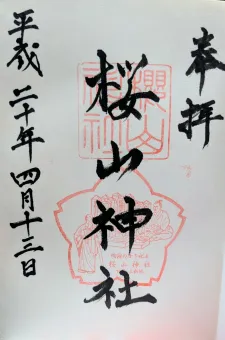 奉拝
桜山神社
平成二十年四月十三日
櫻山神社